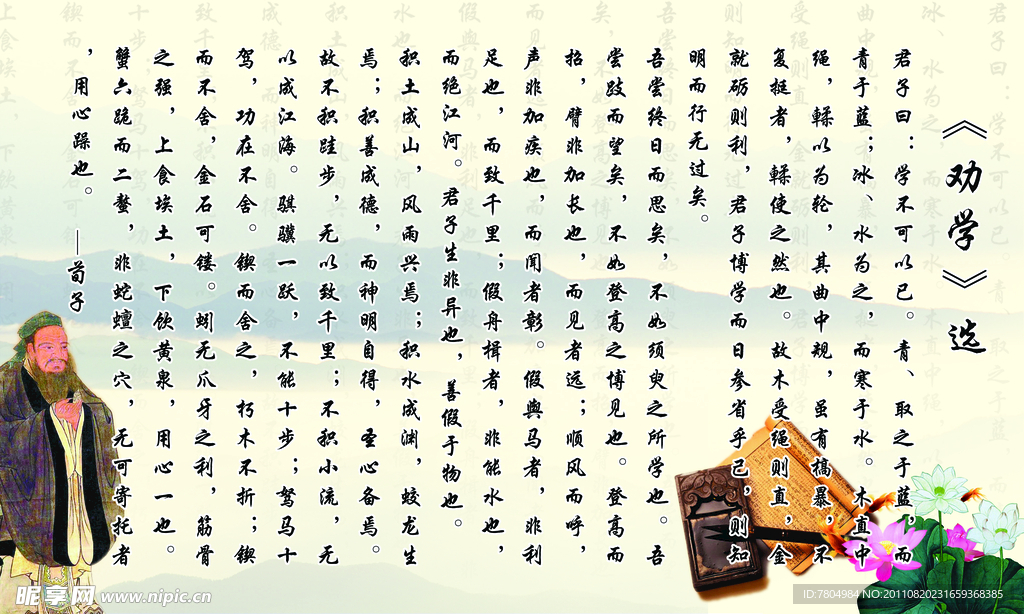 《劝学》选
君子曰：学不可以已。青、取之于蓝，而
青于蓝；冰、水为之，而寒于水。木直中
绳，輮以为轮，其曲中规，虽有槁暴，不
复挺者，輮使之然也。故木受绳则直，金
就砺则利，君子博学而日参省乎己，则知
明而行无过矣。
吾尝终日而思矣，不如须臾之所学也。吾
尝跂而望矣，不如登高之博见也。登高而
招，臂非加长也，而见者远；顺风而呼，
声非加疾也，而闻者彰。假舆马者，非利
足也，而致千里；假舟楫者，非能水也，
而绝江河。君子生非异也，善假于物也。
积土成山，风雨兴焉；积水成渊，蛟龙生
焉；积善成德，而神明自得，圣心备焉。
故不积跬步，无以致千里；不积小流，无
以成江海。骐骥一跃，不能十步；驽马十
驾，功在不舍。锲而舍之，朽木不折；锲
而不舍，金石可镂。蚓无爪牙之利，筋骨
之强，上食埃土，下饮黄泉，用心一也。
蟹六跪而二螯，非蛇蟺之穴，无可寄托者
，用心躁也。 —荀子
昵享网 www.nipic.cn
ID:7804984 NO:20110820231659368385